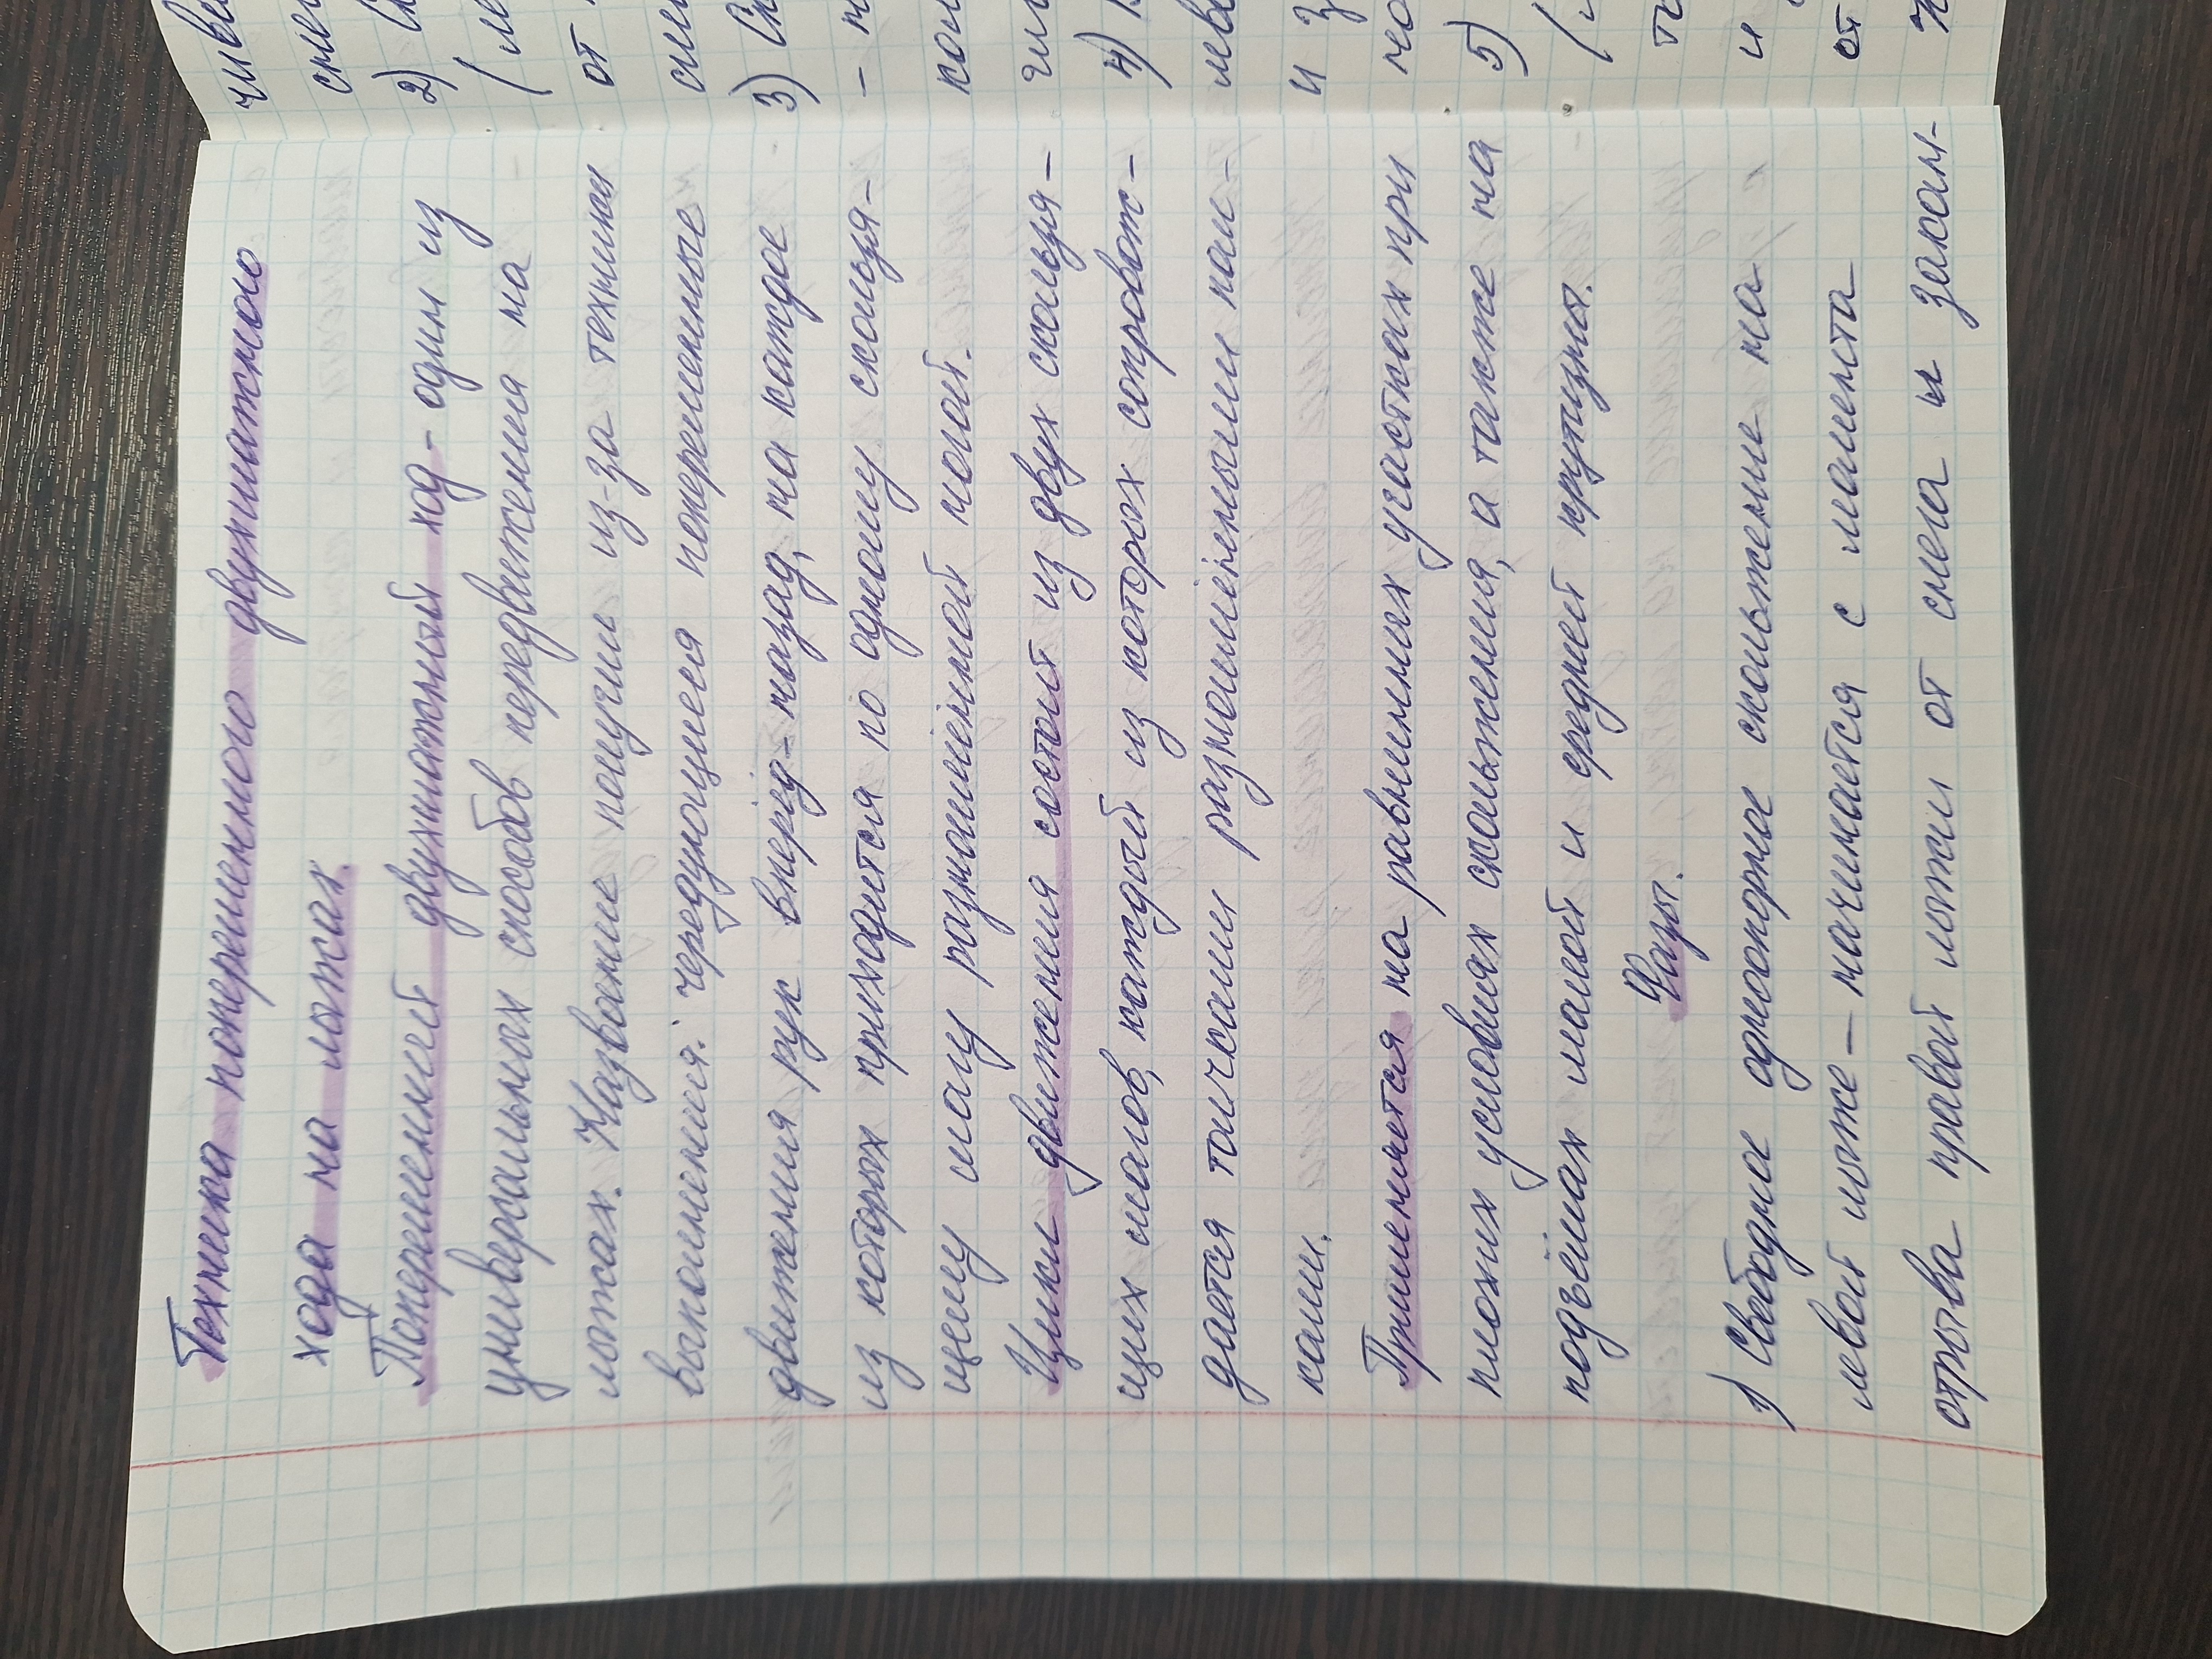 Техника попеременного двухшажного
хода на лыжах.
Попеременный двухшажный ход - один из
универсальных способов передвижения на
лыжах. Название получил из-за техники
выполнения: чередующиеся попеременные
движения рук вперёд-назад, на каждое
из которых приходится по одному скользя-
щему шагу разноимённой ногой.
Цикл движения состоит из двух скользя-
щих шагов, каждый из которых сопровож-
дается толчками разноимёнными пал-
ками.
Применяется на равнинных участках при
плохих условиях скольжения, а также на
подъёмах малой и средней крутизны.
Фазы.
1) Свободное одноопорное скольжение на
левой лыже - начинается с момента
отрыва правой лыжи от снега и закан-
чива
снег
2) С
от
3) С
4)
и з
5)
и
от